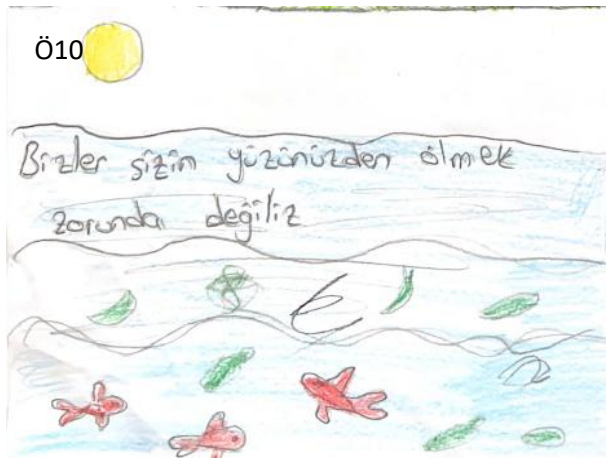 Ö10
Bizler sizin yüzünüzden ölmek
zorunda değiliz